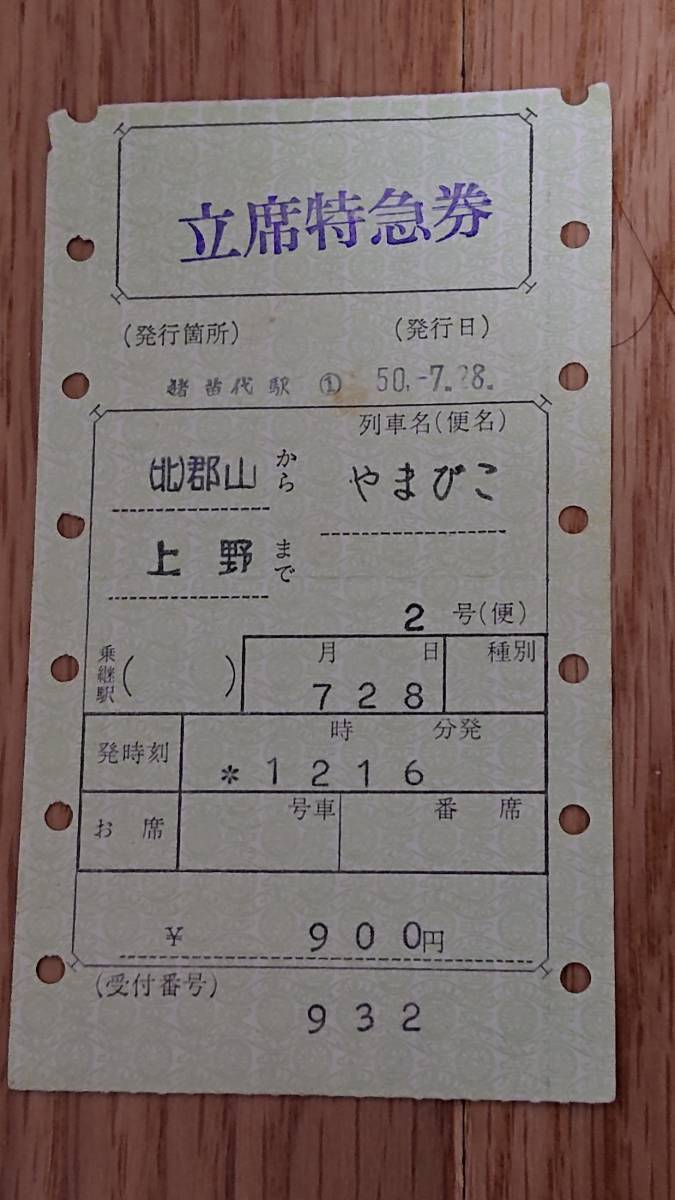 立席特急券
(発行箇所) (発行日)
猪苗代駅 ① 50.-7.28.
列車名(便名)
(北)郡山から やまびこ
上野まで
2 号(便)
乗継駅( ) 月 日 種別
7 28
発時刻 時 分発
*1216
お席 号車 番 席
¥ 900円
(受付番号)
932